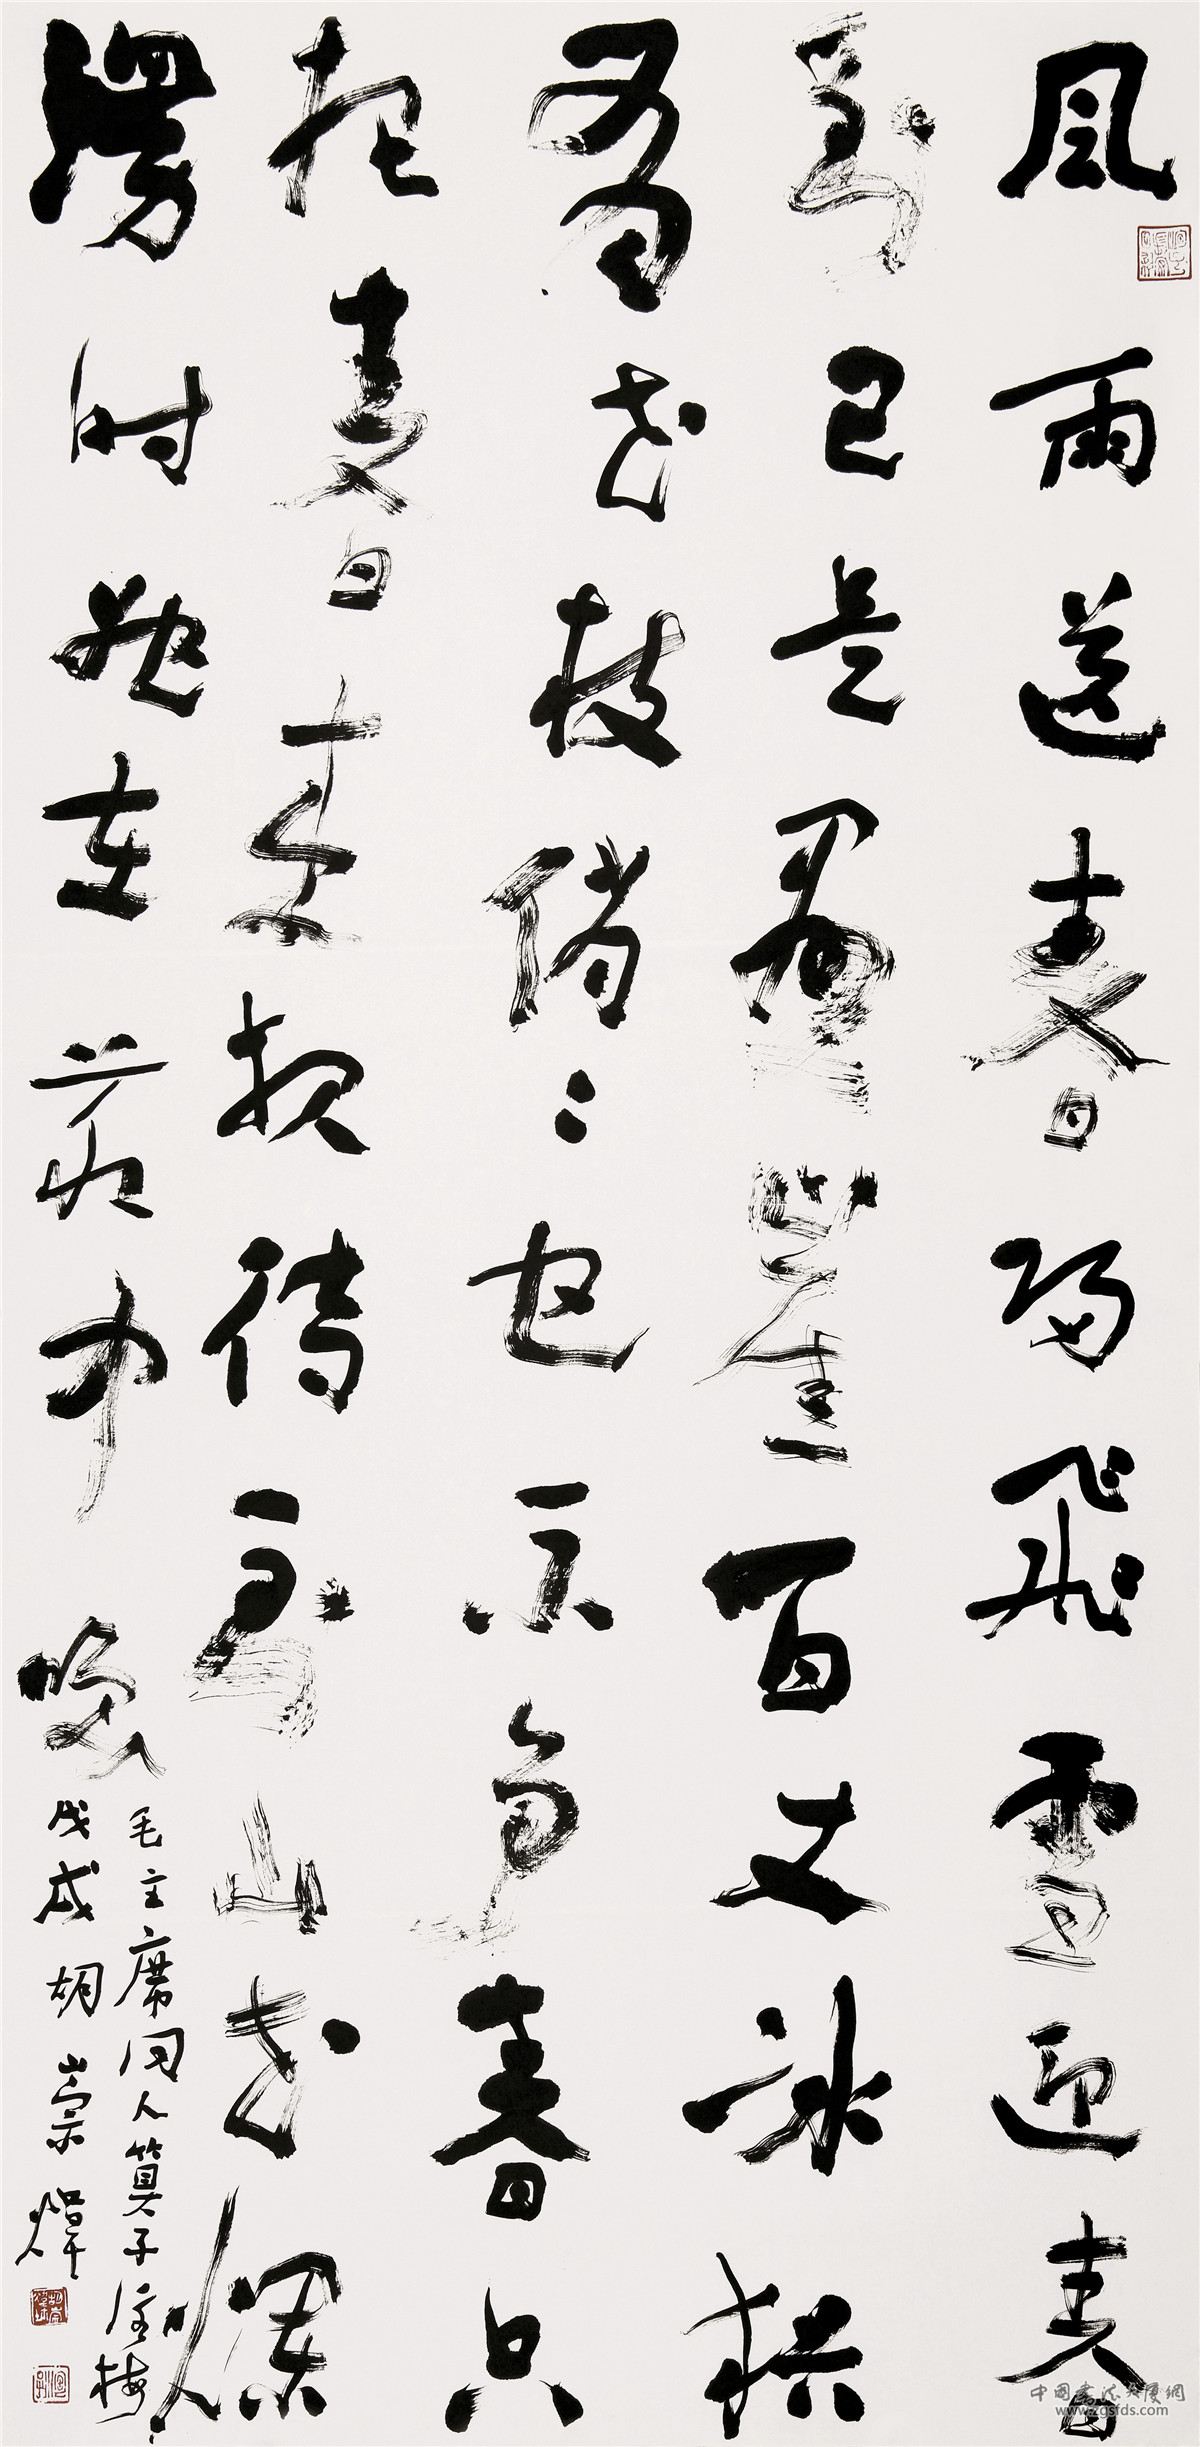 風雨送春歸飛雪迎春
到已是懸崖百丈冰猶
有花枝俏〻也不争春只
把春来報待到山花爛
漫时她在叢中笑
毛主席词卜算子詠梅
戊戌胡崇煒
中国书法大厦網
www.zgsfds.com